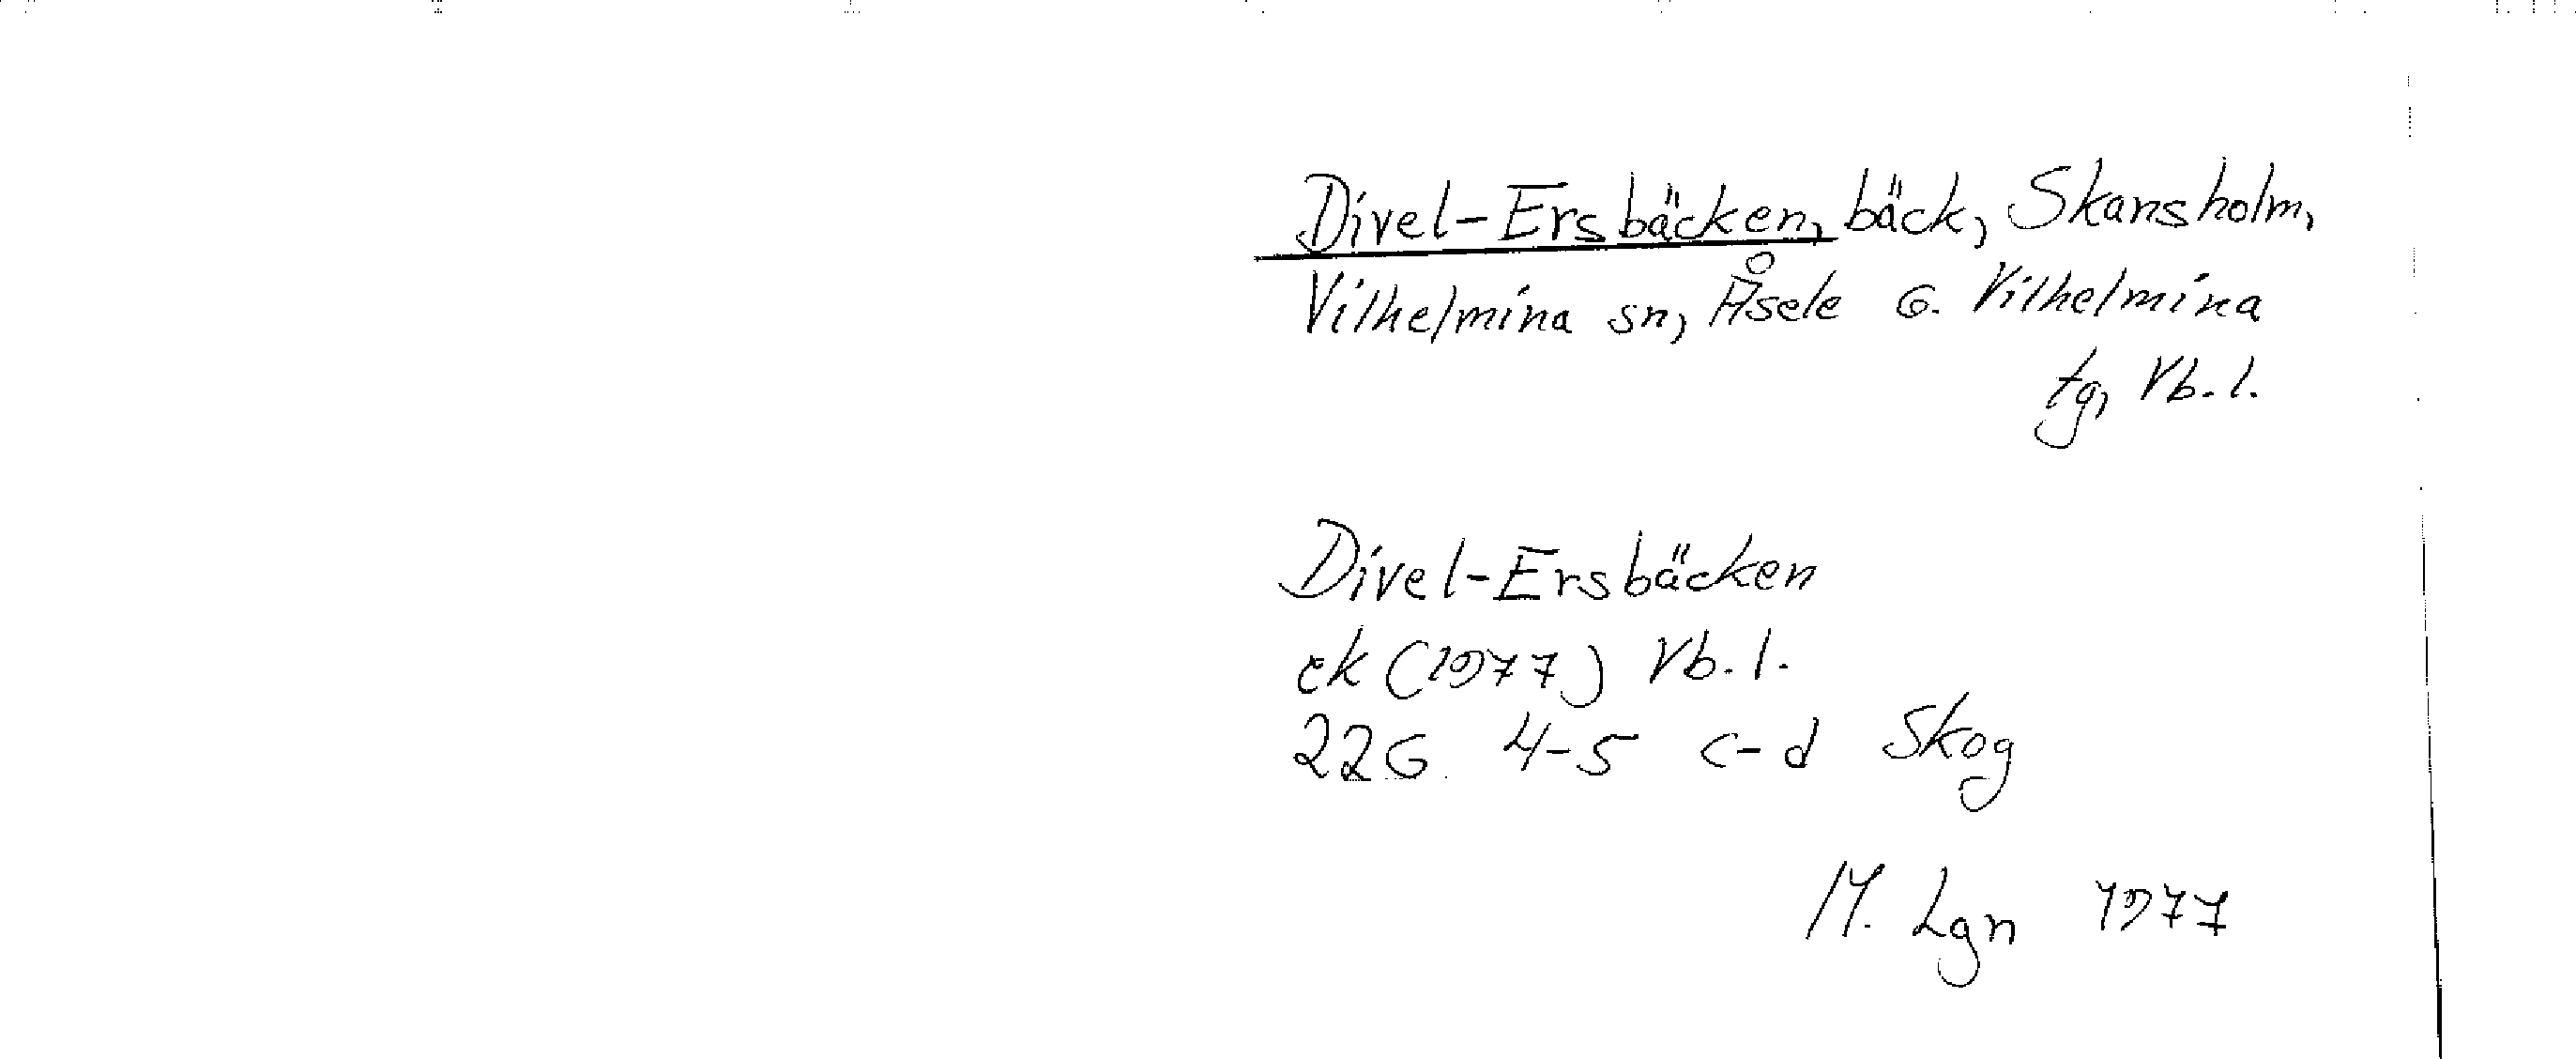 Divel-Ersbäcken, bäck, Skansholm,
Vilhelmina sn, Åsele G. Vilhelmina
tg, Vb. l.
Divel-Ersbäcken
ek (1977) Vb. l.
22G 4-5 c-d Skog
M. Lgn 1977